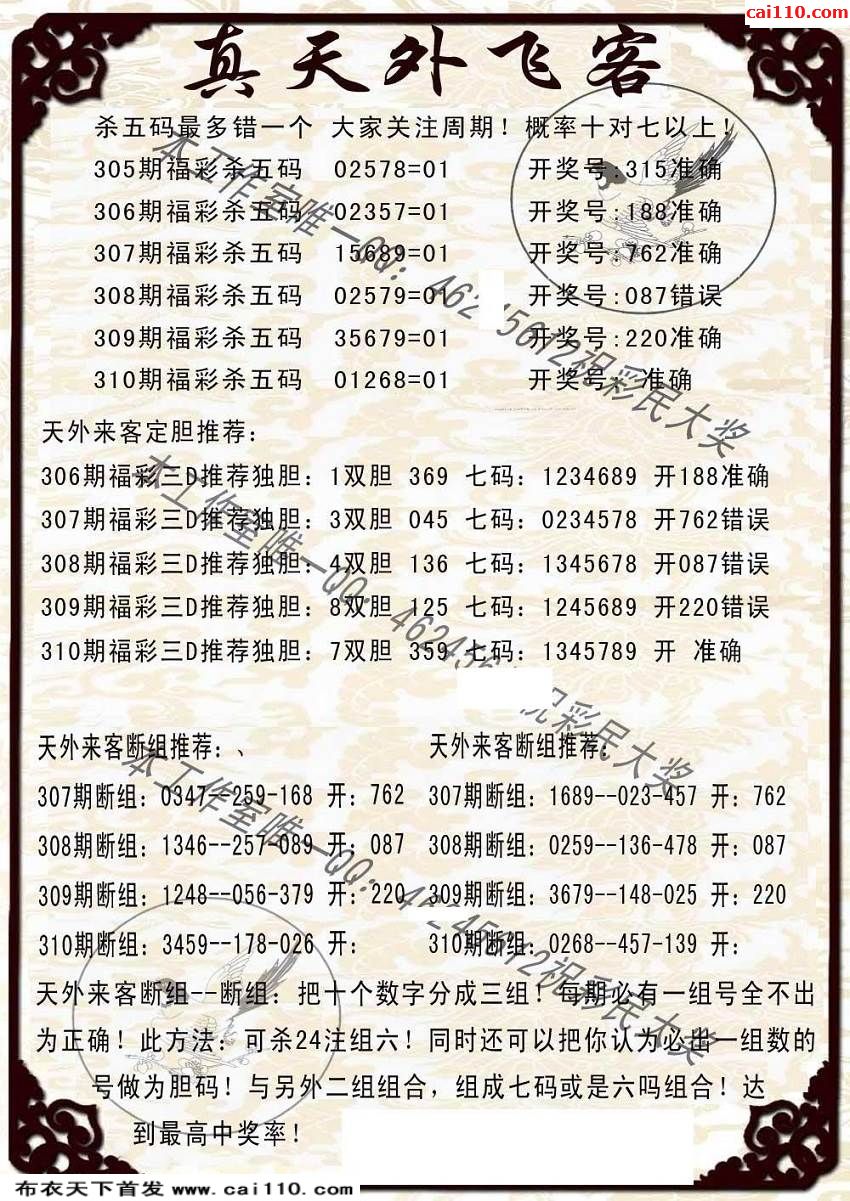 cai110.com
真天外飞客
杀五码最多错一个 大家关注周期！概率十对七以上！
305期福彩杀五码 02578=01 开奖号:315准确
306期福彩杀五码 02357=01 开奖号:188准确
307期福彩杀五码 15689=01 开奖号:762准确
308期福彩杀五码 02579=01 开奖号:087错误
309期福彩杀五码 35679=01 开奖号:220准确
310期福彩杀五码 01268=01 开奖号: 准确
天外来客定胆推荐：
306期福彩三D推荐独胆：1双胆 369 七码：1234689 开188准确
307期福彩三D推荐独胆：3双胆 045 七码：0234578 开762错误
308期福彩三D推荐独胆：4双胆 136 七码：1345678 开087错误
309期福彩三D推荐独胆：8双胆 125 七码：1245689 开220错误
310期福彩三D推荐独胆：7双胆 359 七码：1345789 开 准确
天外来客断组推荐：、 天外来客断组推荐：
307期断组：0347--259-168 开：762 307期断组：1689--023-457 开：762
308期断组：1346--257-089 开：087 308期断组：0259--136-478 开：087
309期断组：1248--056-379 开：220 309期断组：3679--148-025 开：220
310期断组：3459--178-026 开： 310期断组：0268--457-139 开：
天外来客断组--断组：把十个数字分成三组！每期必有一组号全不出
为正确！此方法：可杀24注组六！同时还可以把你认为必出一组数的
号做为胆码！与另外二组组合，组成七码或是六吗组合！达
到最高中奖率！
本工作室唯一QQ：462 5612祝彩民大奖
本工作室唯一QQ：46245 祝彩民大奖
本工作室唯一QQ：46245612祝彩民大奖
布衣天下首发 www.cai110.com